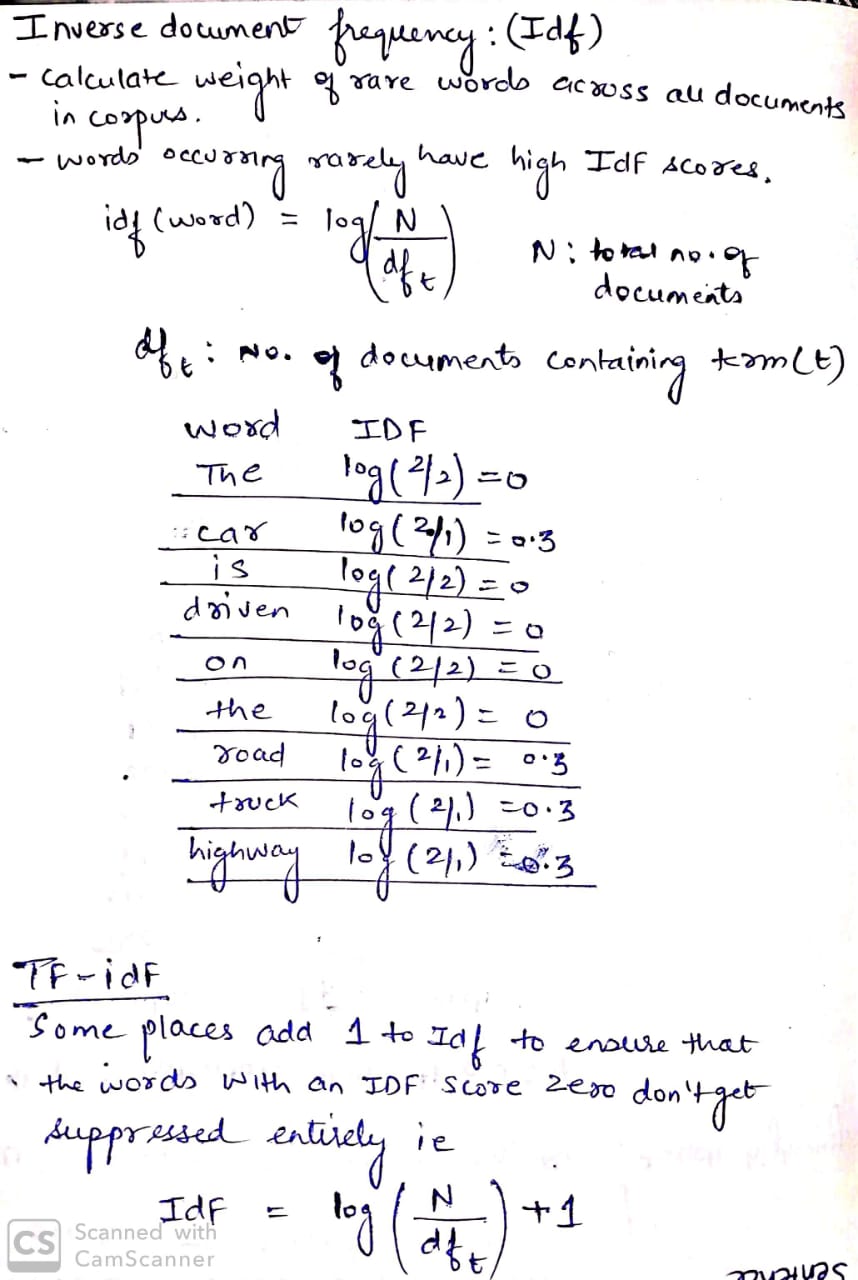 Inverse document frequency: (Idf)
- calculate weight of rare words across all documents
in corpus.
- words occurring rarely have high Idf scores.
idf (word) = log(N/df_t)
N: total no. of
documents
df_t: No. of documents containing term(t)
word IDF
The log(2/2) =0
car log(2/1) = 0.3
is log(2/2) = 0
driven log(2/2) = 0
on log(2/2) = 0
the log(2/2) = 0
road log(2/1) = 0.3
truck log(2/1) =0.3
highway log(2/1) =0.3
TF-idf
Some places add 1 to Idf to ensure that
the words with an IDF score zero don't get
suppressed entirely ie
Idf = log(N/df_t) +1
CS Scanned with
CamScanner
sentence